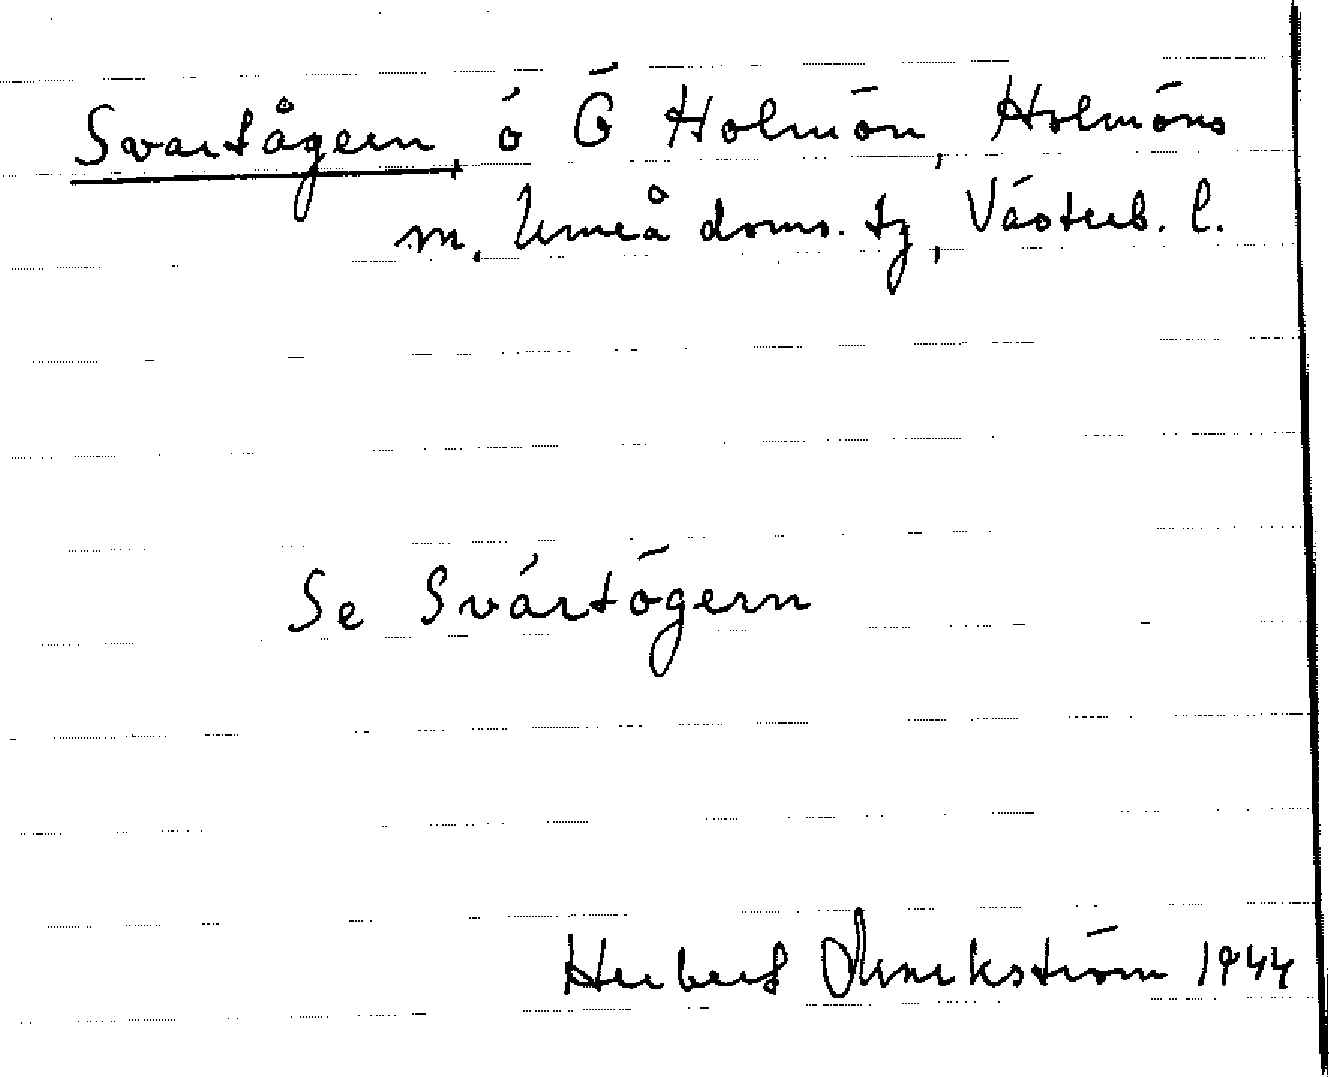 Svartågern, ö Ö Holmön, Holmöns
m, Umeå doms. tg, Västerb. l.
Se Svärtögern
Herbert Markström 1944